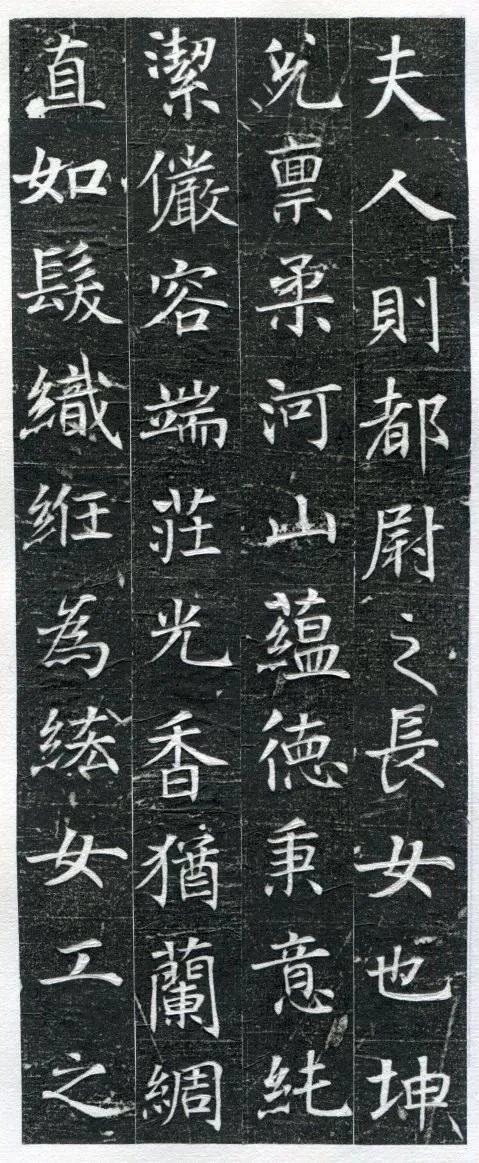 夫人則都尉之長女也坤
兊禀柔河山蘊徳秉意純
潔儼容端莊光香猶蘭綢
直如髮織紝為綊女工之